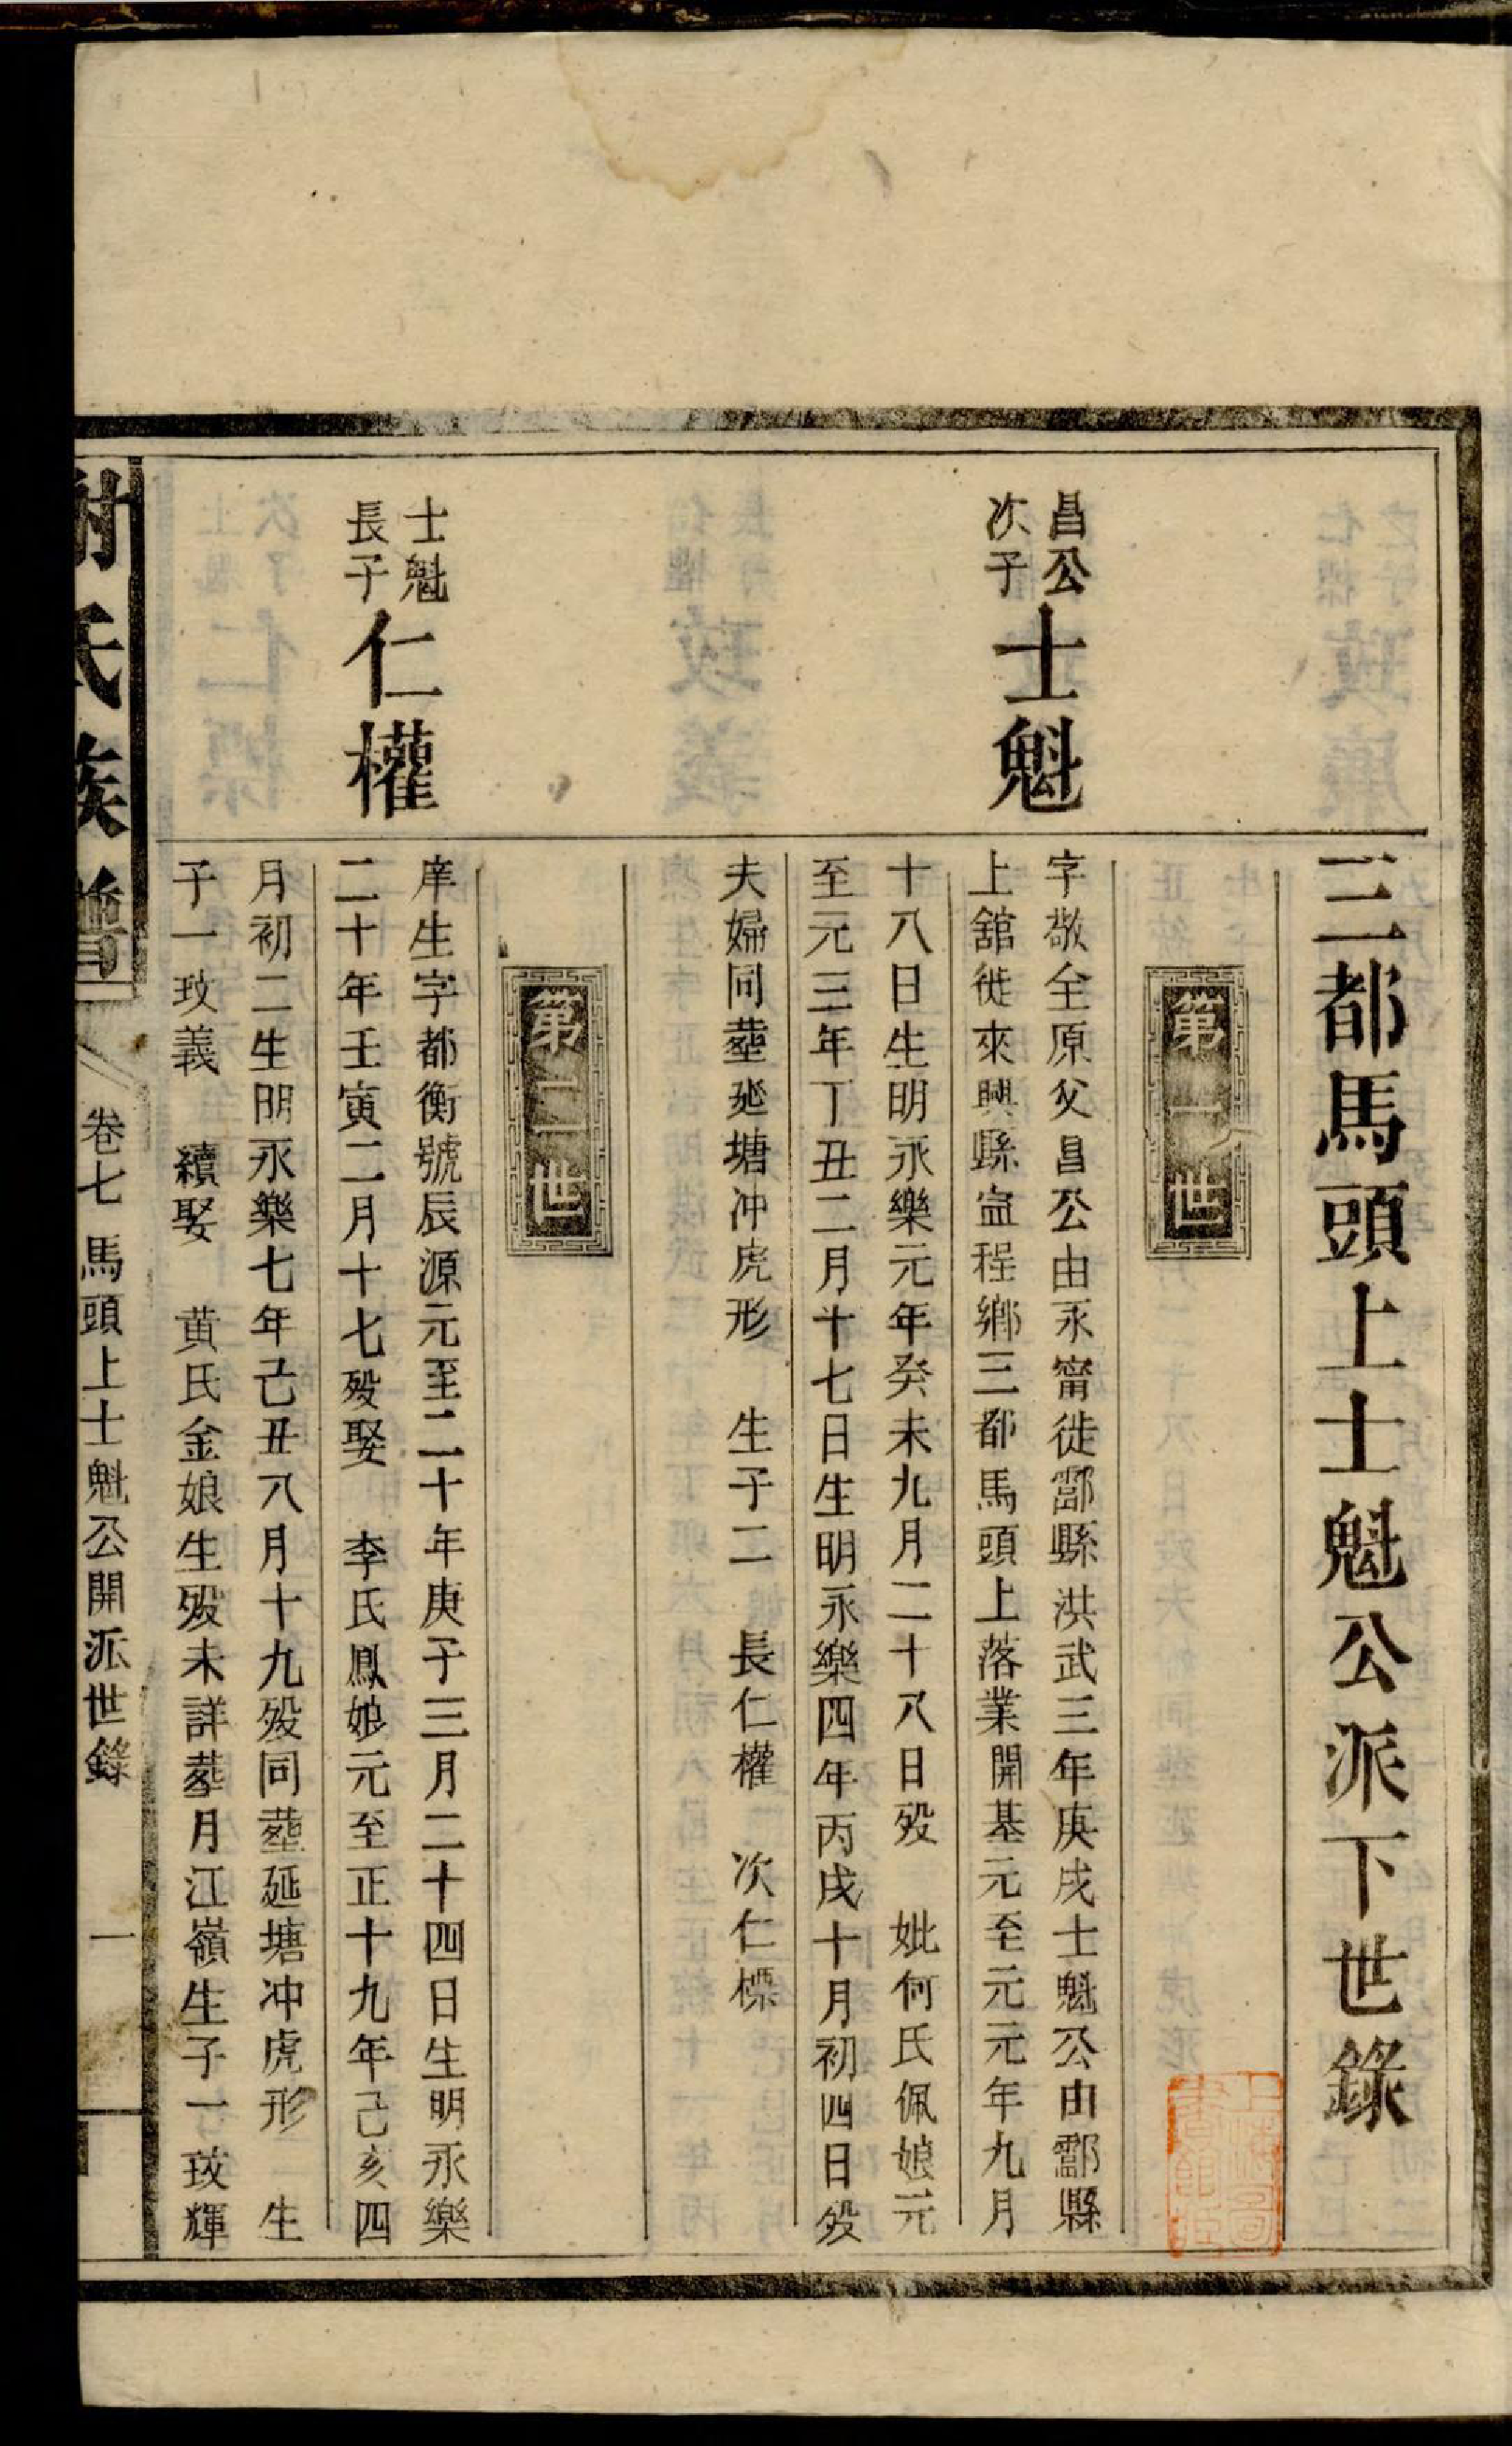 三都馬頭上士魁公派下世錄
第一世
昌公
次子
士魁
字敬全原父昌公由永甯徙酃縣洪武三年庚戌士魁公由酃縣
上舘徙來興縣寍程鄉三都馬頭上落業開基元至元元年九月
十八日生明永樂元年癸未九月二十八日歿 妣何氏佩娘元
至元三年丁丑二月十七日生明永樂四年丙戌十月初四日歿
夫婦同塟延塘冲虎形 生子二 長仁權 次仁標
第二世
士魁
長子
仁權
庠生字都衡號辰源元至二十年庚子三月二十四日生明永樂
二十年壬寅二月十七歿娶 李氏鳳娘元至正十九年己亥四
月初二生明永樂七年己丑八月十九歿同塟延塘冲虎形 生
子一玫義 續娶 黄氏金娘生歿未詳塟月江嶺生子一玫輝
氏族譜
卷七 馬頭上士魁公開派世錄
一